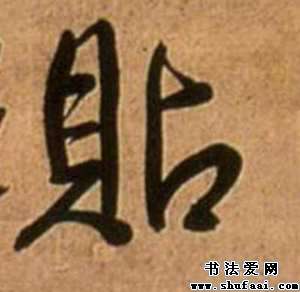 貼
书法爱网
www.shufaai.com